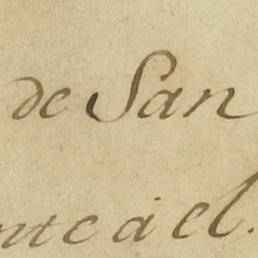 de San
nte a el.